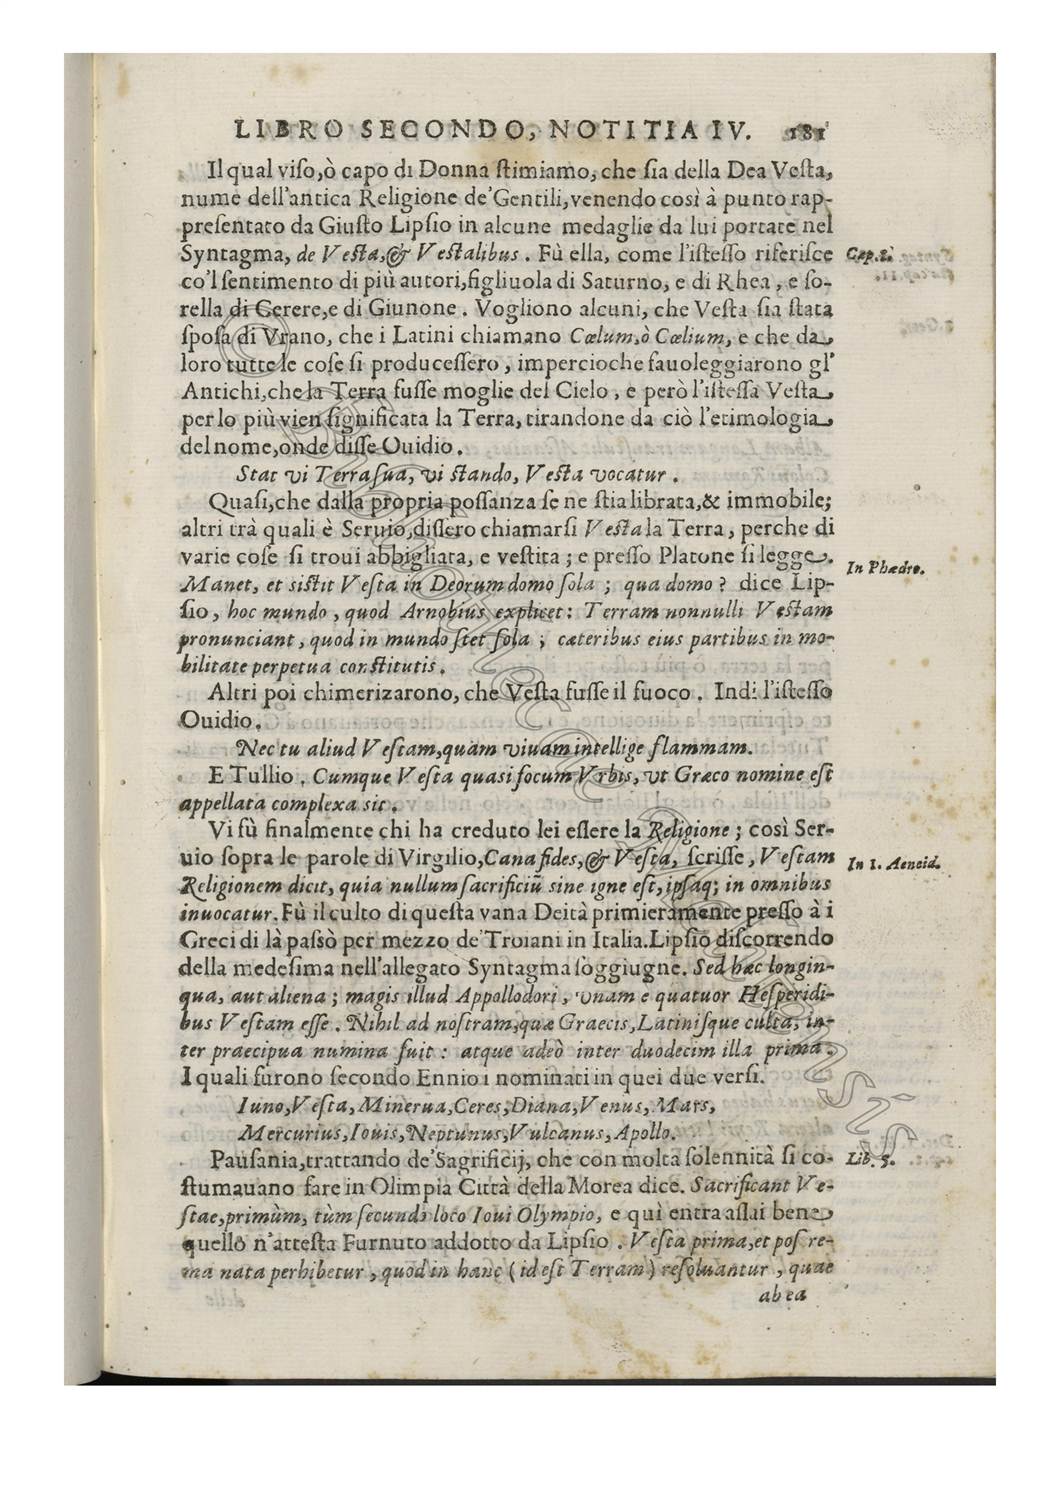 LIBRO SECONDO, NOTITIA IV. 181
Il qual viso, ò capo di Donna stimiamo, che sia della Dea Vesta,
nume dell'antica Religione de' Gentili, venendo così à punto rap-
presentato da Giusto Lipsio in alcune medaglie da lui portate nel
Syntagma, de Vesta, & Vestalibus. Fù ella, come l'istesso riferisce
Cap. 2.
co'l sentimento di più autori, figliuola di Saturno, e di Rhea, e so-
rella di Cerere, e di Giunone. Vogliono alcuni, che Vesta sia stata
sposa di Vrano, che i Latini chiamano Cœlum, ò Cœlium, e che da
loro tutte le cose si producessero, impercioche fauoleggiarono gl'
Antichi, che la Terra fusse moglie del Cielo, e però l'istessa Vesta
per lo più vien significata la Terra, tirandone da ciò l'etimologia
del nome, onde disse Ouidio.
Stat vi Terra sua, vi stando, Vesta vocatur.
Quasi, che dalla propria possanza se ne stia librata, & immobile;
altri trà quali è Seruio, dissero chiamarsi Vesta la Terra, perche di
varie cose si troui abbigliata, e vestita; e presso Platone si legge.
In Phædro.
Manet, et sistit Vesta in Deorum domo sola; qua domo? dice Lip-
sio, hoc mundo, quod Arnobius explicet: Terram nonnulli Vestam
pronunciant, quod in mundo stet sola; cæteribus eius partibus in mo-
bilitate perpetua constitutis.
Altri poi chimerizarono, che Vesta fusse il fuoco. Indi l'istesso
Ouidio.
Nec tu aliud Vestam, quàm viuam intellige flammam.
E Tullio. Cumque Vesta quasi focum Vrbis, vt Græco nomine est
appellata complexa sit.
Vi fù finalmente chi ha creduto lei essere la Religione; così Ser-
uio sopra le parole di Virgilio, Cana fides, & Vesta, scrisse, Vestam
In 1. Aeneid.
Religionem dicit, quia nullum sacrificiũ sine igne est, ipsaq; in omnibus
inuocatur. Fù il culto di questa vana Deità primieramente presso à i
Greci di là passò per mezzo de' Troiani in Italia. Lipsio discorrendo
della medesima nell'allegato Syntagma soggiugne. Sed hæc longin-
qua, aut aliena; magis illud Appollodori, vnam e quatuor Hesperidi-
bus Vestam esse. Nihil ad nostram, quæ Graecis, Latinisque culta, in-
ter praecipua numina fuit: atque adeò inter duodecim illa prima.
I quali furono secondo Ennio i nominati in quei due versi.
Iuno, Vesta, Minerua, Ceres, Diana, Venus, Mars,
Mercurius, Iouis, Neptunus, Vulcanus, Apollo.
Pausania, trattando de' Sagrificij, che con molta solennità si co-
Lib. 5.
stumauano fare in Olimpia Città della Morea dice. Sacrificant Ve-
stae, primùm, tùm secundo loco Ioui Olympio, e quì entra assai bene
quello n'attesta Furnuto addotto da Lipsio. Vesta prima, et postre-
ma nata perhibetur, quod in hanc (id est Terram) resoluantur, quae
ab ea